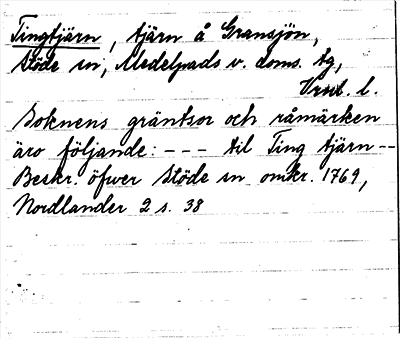 Tingtjärn, tjärn å Gransjön,
Stöde sn, Medelpads v. doms. tg,
Vnrl. l.
Soknens gräntsor och råmärken
äro följande: --- til Ting tjärn --
Beskr. öfwer Stöde sn omkr. 1769,
Nordlander 2 s. 38